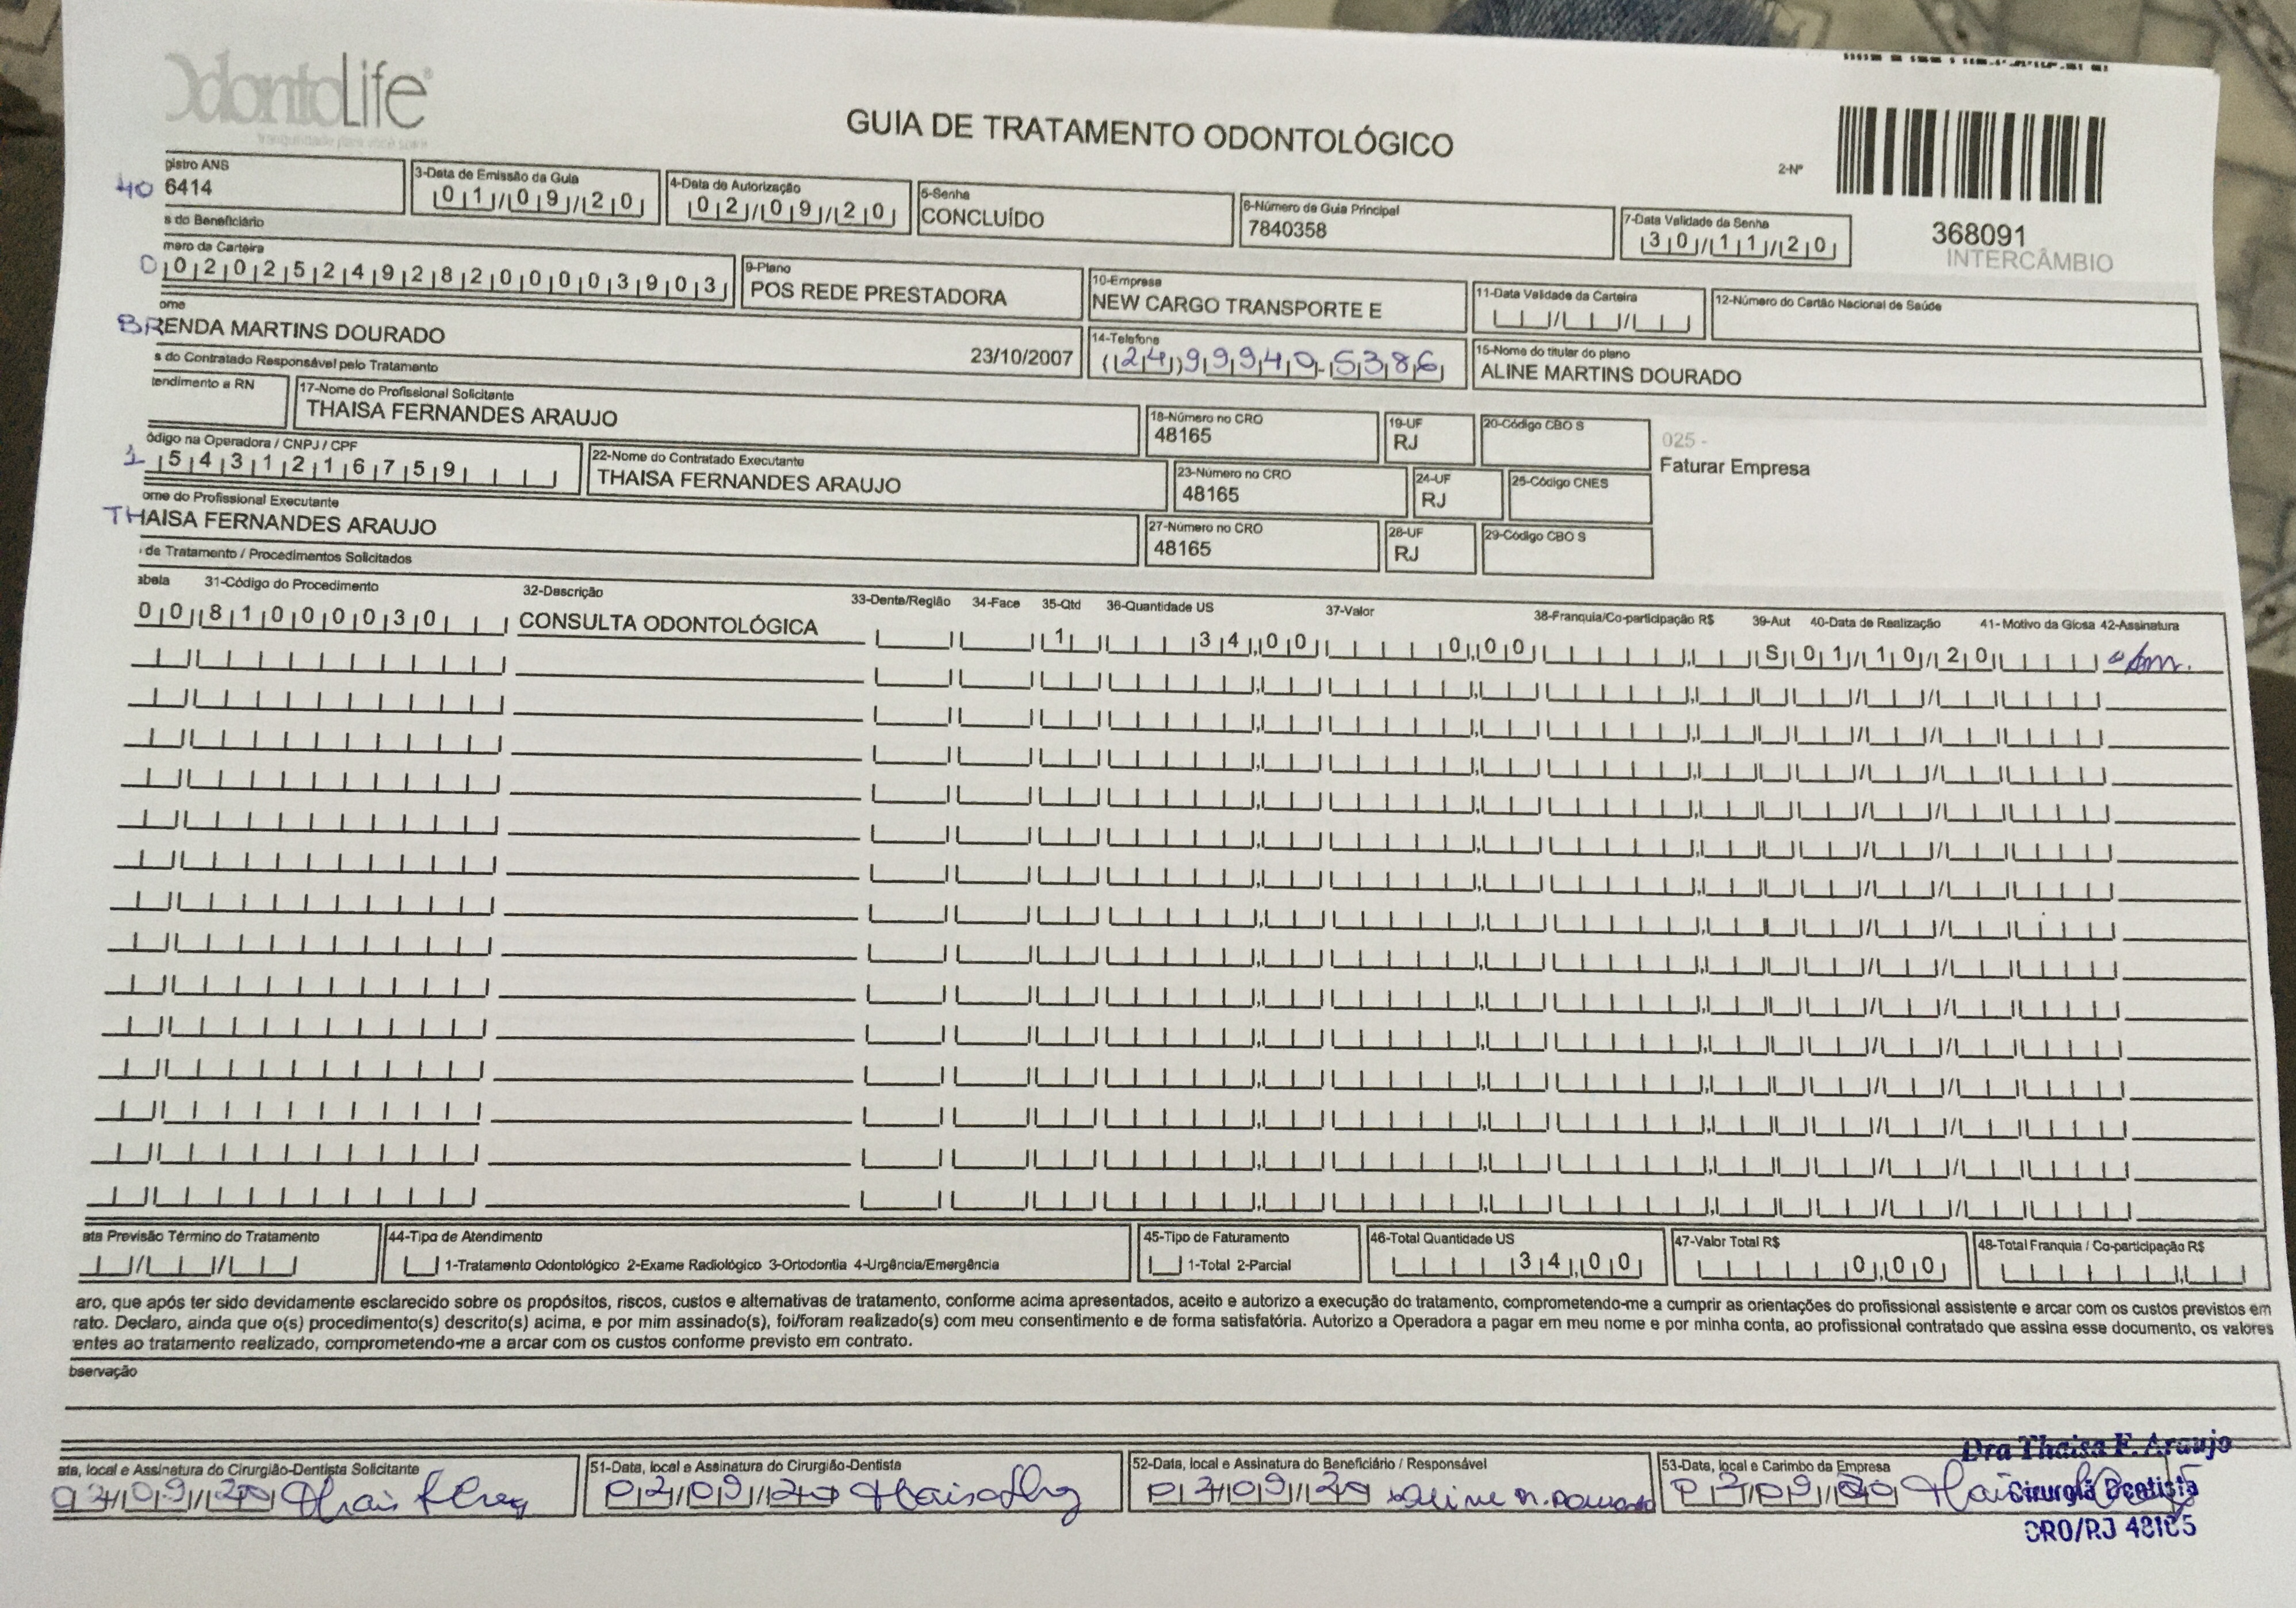 OdontoLife
GUIA DE TRATAMENTO ODONTOLÓGICO
2-Nº
368091
INTERCÂMBIO
gistro ANS
40 6414
3-Data de Emissão da Guia
01/09/20
4-Data de Autorização
02/09/20
5-Senha
CONCLUÍDO
6-Número de Guia Principal
7840358
7-Data Validade da Senha
30/11/20
s do Beneficiário
mero da Carteira
00202524928200003903
9-Plano
POS REDE PRESTADORA
10-Empresa
NEW CARGO TRANSPORTE E
11-Data Validade da Carteira
12-Número do Cartão Nacional de Saúde
ome
BRENDA MARTINS DOURADO
23/10/2007
14-Telefone
(24)99940-5386
15-Nome do titular do plano
ALINE MARTINS DOURADO
s do Contratado Responsável pelo Tratamento
tendimento a RN
17-Nome do Profissional Solicitante
THAISA FERNANDES ARAUJO
18-Número no CRO
48165
19-UF
RJ
20-Código CBO S
025 -
Faturar Empresa
ódigo na Operadora / CNPJ / CPF
154312167 59
22-Nome do Contratado Executante
THAISA FERNANDES ARAUJO
23-Número no CRO
48165
24-UF
RJ
25-Código CNES
ome do Profissional Executante
THAISA FERNANDES ARAUJO
27-Número no CRO
48165
28-UF
RJ
29-Código CBO S
de Tratamento / Procedimentos Solicitados
abela 31-Código do Procedimento 32-Descrição 33-Dente/Região 34-Face 35-Qtd 36-Quantidade US 37-Valor 38-Franquia/Co-participação R$ 39-Aut 40-Data de Realização 41- Motivo da Glosa 42-Assinatura
00 81000030 CONSULTA ODONTOLÓGICA 1 34,00 0,00 S 01/10/20
ata Previsão Término do Tratamento
44-Tipo de Atendimento
1-Tratamento Odontológico 2-Exame Radiológico 3-Ortodontia 4-Urgência/Emergência
45-Tipo de Faturamento
1-Total 2-Parcial
46-Total Quantidade US
34,00
47-Valor Total R$
0,00
48-Total Franquia / Co-participação R$
aro, que após ter sido devidamente esclarecido sobre os propósitos, riscos, custos e alternativas de tratamento, conforme acima apresentados, aceito e autorizo a execução do tratamento, comprometendo-me a cumprir as orientações do profissional assistente e arcar com os custos previstos em
rato. Declaro, ainda que o(s) procedimento(s) descrito(s) acima, e por mim assinado(s), foi/foram realizado(s) com meu consentimento e de forma satisfatória. Autorizo a Operadora a pagar em meu nome e por minha conta, ao profissional contratado que assina esse documento, os valores
entes ao tratamento realizado, comprometendo-me a arcar com os custos conforme previsto em contrato.
bservação
ata, local e Assinatura do Cirurgião-Dentista Solicitante
02/09/20
51-Data, local e Assinatura do Cirurgião-Dentista
02/09/20
52-Data, local e Assinatura do Beneficiário / Responsável
02/09/20 Aline M. Dourado
53-Data, local e Carimbo da Empresa
02/09/20
Dra Thaisa F. Araujo
Cirurgiã Dentista
CRO/RJ 48165